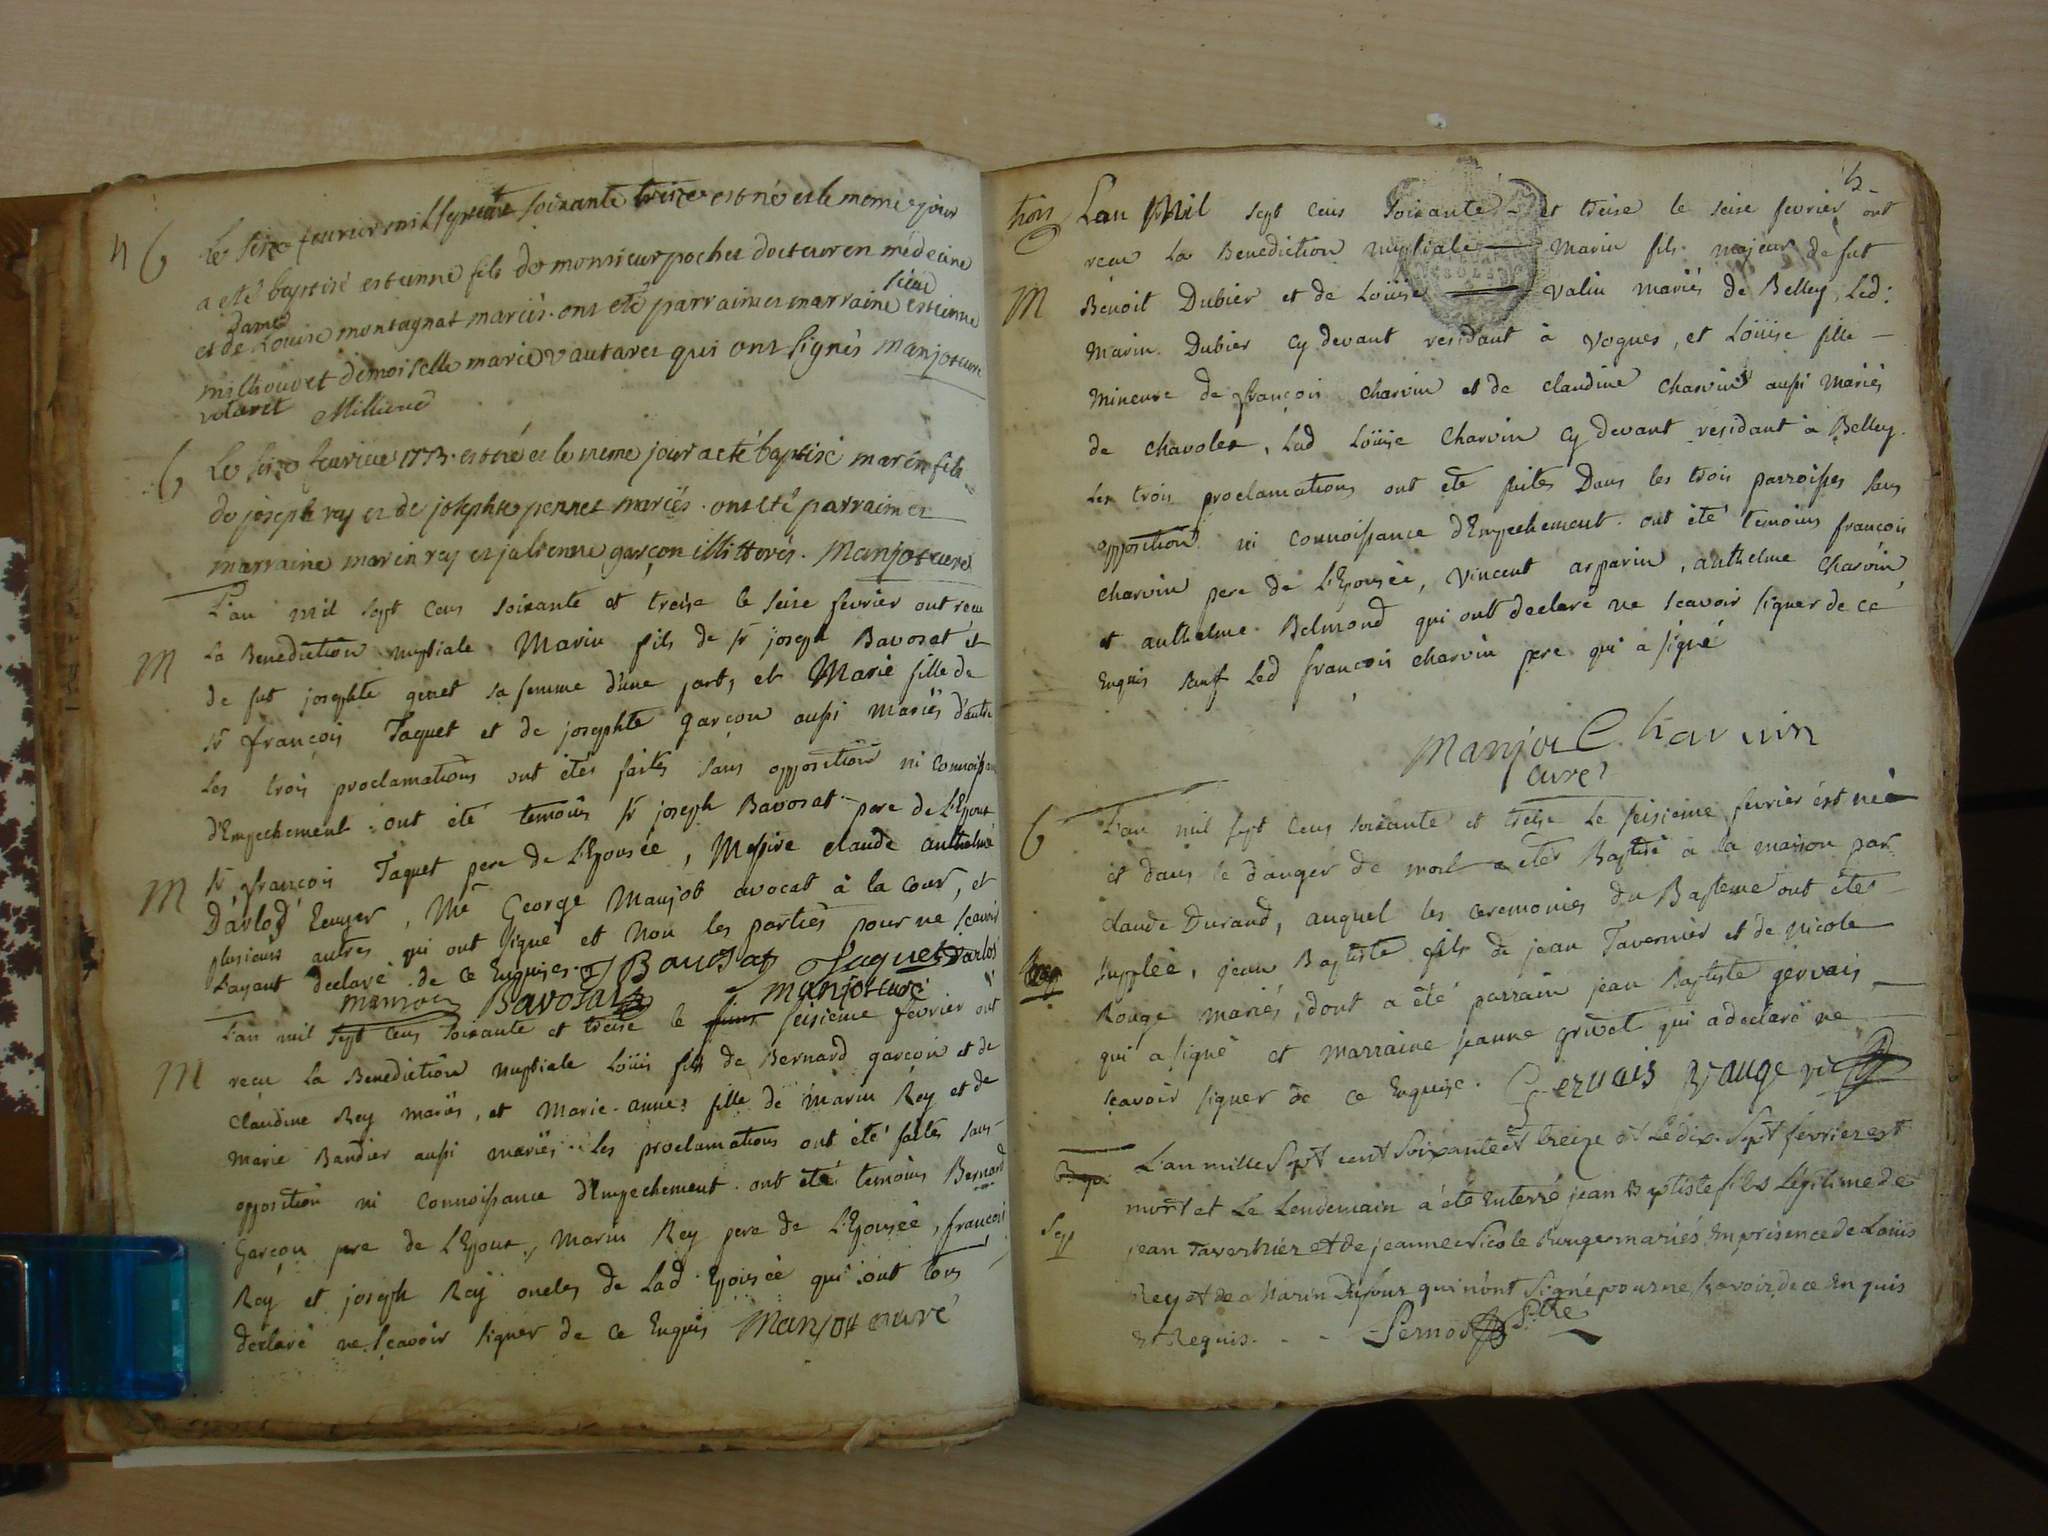 4
b
Le seize fevrier mil sept cent soixante treize est né et le meme jour
a eté baptisé estienne fils de monsieur pochet docteur en médecine
et de dame Louise montagnat mariés. ont été parrain et marraine sieur estienne
milliou et demoiselle marie vautaret qui ont signés Manjot curé
votaret Millioud
b
Le seize fevrier 1773. est né et le meme jour a eté baptisé marin fils
de joseph rey et de josephte pernet mariés. ont eté parrain et
marraine marin rey et julienne garçon illitterés. Manjot curé
L'an mil sept cens soixante et treise le seise fevrier ont reçu
M
La Benediction nuptiale Marin fils de sr joseph Bavosat et
de fut josephte genet sa femme d'une part, et Marie fille de
sr françois Taquet et de josephte garçon aussi mariés d'autre
Les trois proclamations ont étés faites sans opposition ni connoissance
d'Empechement. ont eté temoins sr joseph Bavosat pere de L'Epoux
M
sr françois Taquet pere de L'Epousée, Messire claude anthelme
Darlod Ecuyer, Me George Manjot avocat à la cour, et
plusieurs autres qui ont signé et non les parties pour ne sçavoir
L'ayant declaré de ce Enquises. J Bavosat Jaquet Darlod
manjot Bavosat manjot curé
M
L'an mil sept cens soixante et treise le seisieme fevrier ont
reçu La Benediction nuptiale Loüis fils de Bernard garçon et de
claudine Rey mariés, et Marie-anne fille de marin Rey et de
marie Bandier aussi mariés. Les proclamations ont été faites sans
opposition ni connoissance d'Empechement. ont été temoins Bernard
Garçon pere de L'Epoux, Marin Rey pere de L'Epousée, françois
Rey et joseph Rey oncles de Lad. Epousée qui ont tous
declaré ne sçavoir signer de ce Enquis Manjot curé
5
L'an Mil sept cens soixante et treise le seise fevrier ont
reçu La Benediction nuptiale Marin fils majeur de fut
M
Benoit Dubier et de Loüise Valin mariés de Belley, Led:
Marin Dubier cy devant residant à Vogues, et Loüise fille
mineure de françois charvin et de claudine charvin aussi mariés
de chavolet, Lad Loüise Charvin cy devant residant à Belley.
Les trois proclamations ont eté faites Dans les trois parroisses sans
opposition ni connoissance d'Empechement. ont été temoins françois
charvin pere de L'Epousée, Vincent arparin, anthelme Charvin
et anthelme Belmond qui ont declaré ne scavoir signer de ce
Enquis sauf Led françois charvin pere qui a signé
Manjot Charvin
curé
b
L'an mil sept cens soixante et treise Le seisieme fevrier est né
et dans le danger de mort a etés Baptisé a la maison par
claude Durand, auquel les ceremonies du Bapteme ont étés
supplée, jean Baptiste fils de jean Tavernier et de nicole
Rouge mariés, dont a été parrain jean Baptiste gervais
qui a signé et marraine jeanne grivet qui a declaré ne
sçavoir signer de ce Enquise. Gervais
L'an mille Sept cent Soixante et treize et Le dix-Sept février est
mort et Le Lendemain a été Enterré jean Baptiste fils Légitime de
Sep
jean Tavernier et de jeanne Nicole Rouge mariés, En présence de Loüis
Rey et de Marin Dufour qui n'ont Signé pour ne sçavoir, de ce Enquis
Et Requis. - - Pernod Ptre